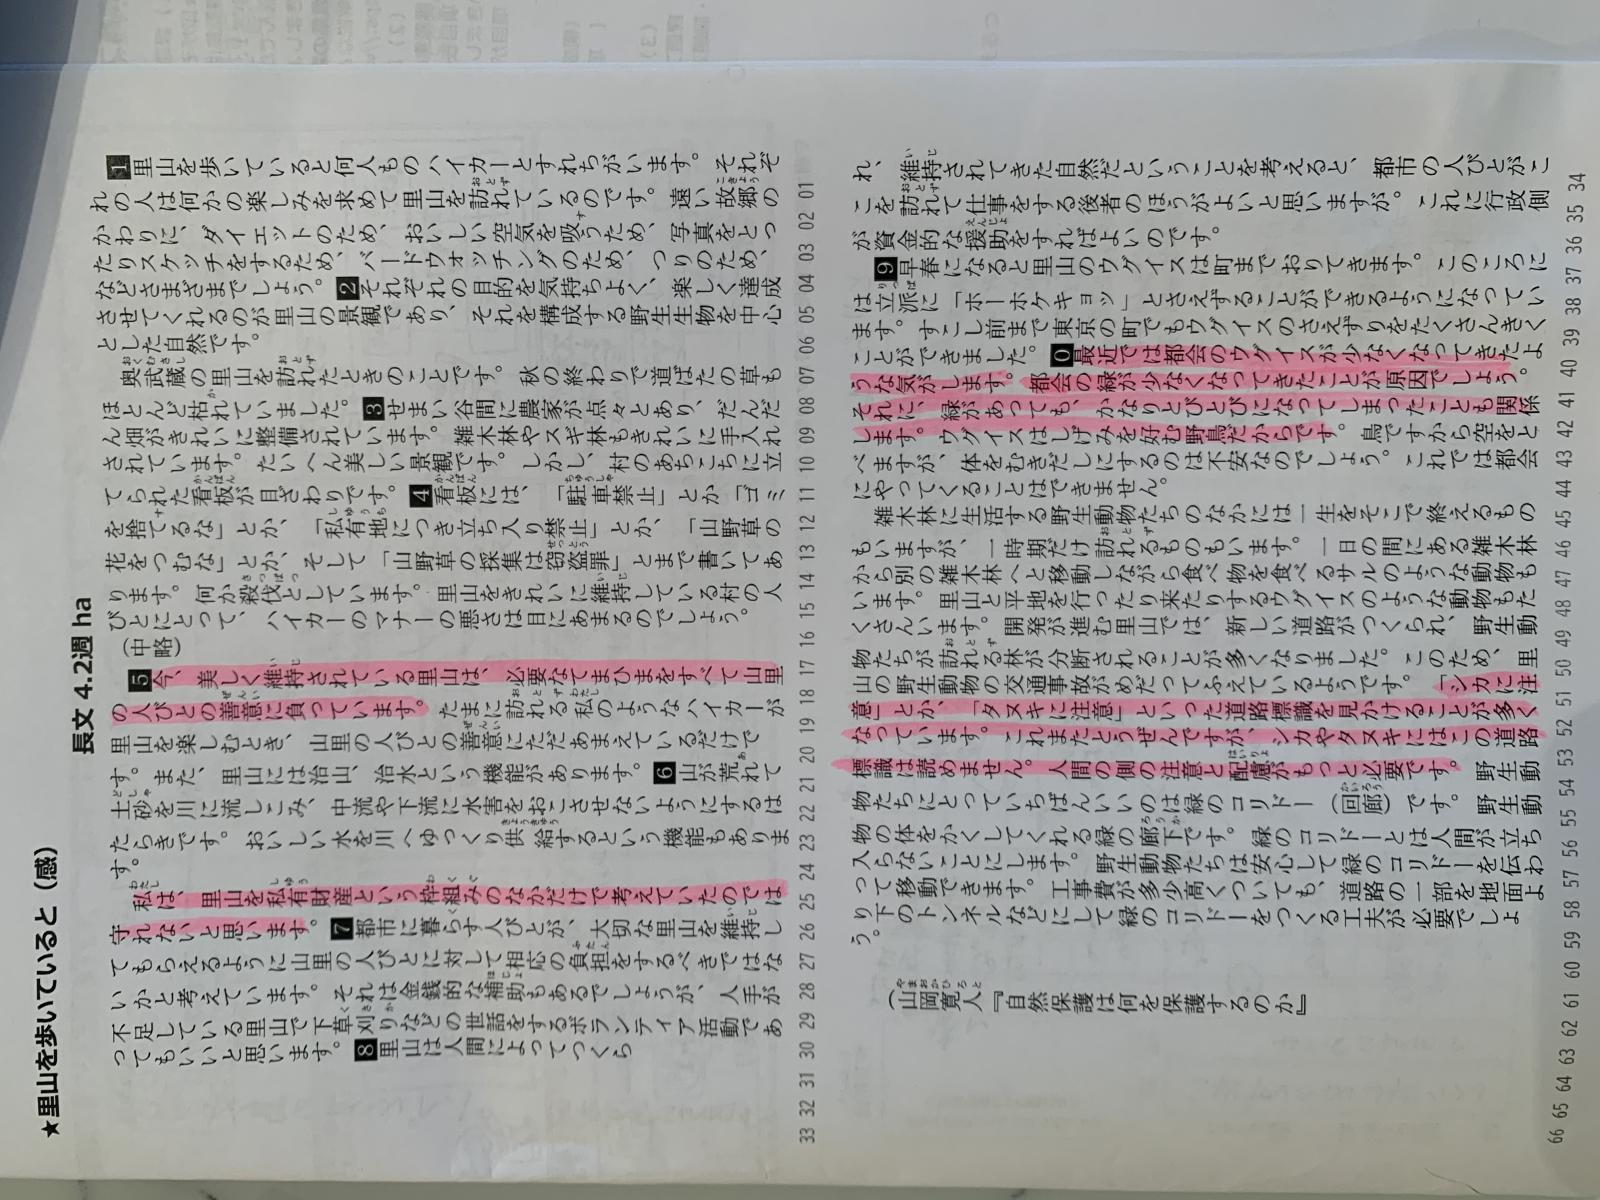 ★里山を歩いていると（感）
長文 4.2週 ha
1里山を歩いていると何人ものハイカーとすれちがいます。それぞ
れの人は何かの楽しみを求めて里山を訪れているのです。遠い故郷の
かわりに、ダイエットのため、おいしい空気を吸うため、写真をとっ
たりスケッチをするため、バードウォッチングのため、つりのため、
などさまざまでしょう。2それぞれの目的を気持ちよく、楽しく達成
させてくれるのが里山の景観であり、それを構成する野生生物を中心
とした自然です。
奥武蔵の里山を訪れたときのことです。秋の終わりで道ばたの草も
ほとんど枯れていました。3せまい谷間に農家が点々とあり、だんだ
ん畑がきれいに整備されています。雑木林やスギ林もきれいに手入れ
されています。たいへん美しい景観です。しかし、村のあちこちに立
てられた看板が目ざわりです。4看板には、「駐車禁止」とか「ゴミ
を捨てるな」とか、「私有地につき立ち入り禁止」とか、「山野草の
花をつむな」とか、そして「山野草の採集は窃盗罪」とまで書いてあ
ります。何か殺伐としています。里山をきれいに維持している村の人
びとにとって、ハイカーのマナーの悪さは目にあまるのでしょう。
（中略）
5今、美しく維持されている里山は、必要なてまひまをすべて山里
の人びとの善意に負っています。たまに訪れる私のようなハイカーが
里山を楽しむとき、山里の人びとの善意にただあまえているだけで
す。また、里山には治山、治水という機能があります。6山が荒れて
土砂を川に流しこみ、中流や下流に水害をおこさせないようにするは
たらきです。おいしい水を川へゆっくり供給するという機能もありま
す。
私は、里山を私有財産という枠組みのなかだけで考えていたのでは
守れないと思います。7都市に暮らす人びとが、大切な里山を維持し
てもらえるように山里の人びとに対して相応の負担をするべきではな
いかと考えています。それは金銭的な補助もあるでしょうが、人手が
不足している里山で下草刈りなどの世話をするボランティア活動であ
ってもいいと思います。8里山は人間によってつくら
01 02 03 04 05 06 07 08 09 10 11 12 13 14 15 16 17 18 19 20 21 22 23 24 25 26 27 28 29 30 31 32 33
れ、維持されてきた自然だということを考えると、都市の人びとがこ
こを訪れて仕事をする後者のほうがよいと思いますが。これに行政側
が資金的な援助をすればよいのです。
9早春になると里山のウグイスは町までおりてきます。このころに
は立派に「ホーホケキョッ」とさえずることができるようになってい
ます。すこし前まで東京の町でもウグイスのさえずりをたくさんきく
ことができました。0最近では都会のウグイスが少なくなってきたよ
うな気がします。都会の緑が少なくなってきたことが原因でしょう。
それに、緑があっても、かなりとびとびになってしまったことも関係
します。ウグイスはしげみを好む野鳥だからです。鳥ですから空をと
べますが、体をむきだしにするのは不安なのでしょう。これでは都会
にやってくることはできません。
雑木林に生活する野生動物たちのなかには一生をそこで終えるもの
もいますが、一時期だけ訪れるものもいます。一日の間にある雑木林
から別の雑木林へと移動しながら食べ物を食べるサルのような動物も
います。里山と平地を行ったり来たりするウグイスのような動物もた
くさんいます。開発が進む里山では、新しい道路がつくられ、野生動
物たちが訪れる林が分断されることが多くなりました。このため、里
山の野生動物の交通事故がめだってふえているようです。「シカに注
意」とか、「タヌキに注意」といった道路標識を見かけることが多く
なっています。これまたとうぜんですが、シカやタヌキにはこの道路
標識は読めません。人間の側の注意と配慮がもっと必要です。野生動
物たちにとっていちばんいいのは緑のコリドー（回廊）です。野生動
物の体をかくしてくれる緑の廊下です。緑のコリドーとは人間が立ち
入らないことにします。野生動物たちは安心して緑のコリドーを伝わ
って移動できます。工事費が多少高くついても、道路の一部を地面よ
り下のトンネルなどにして緑のコリドーをつくる工夫が必要でしょ
う。
（山岡寛人『自然保護は何を保護するのか』
34 35 36 37 38 39 40 41 42 43 44 45 46 47 48 49 50 51 52 53 54 55 56 57 58 59 60 61 62 63 64 65 66